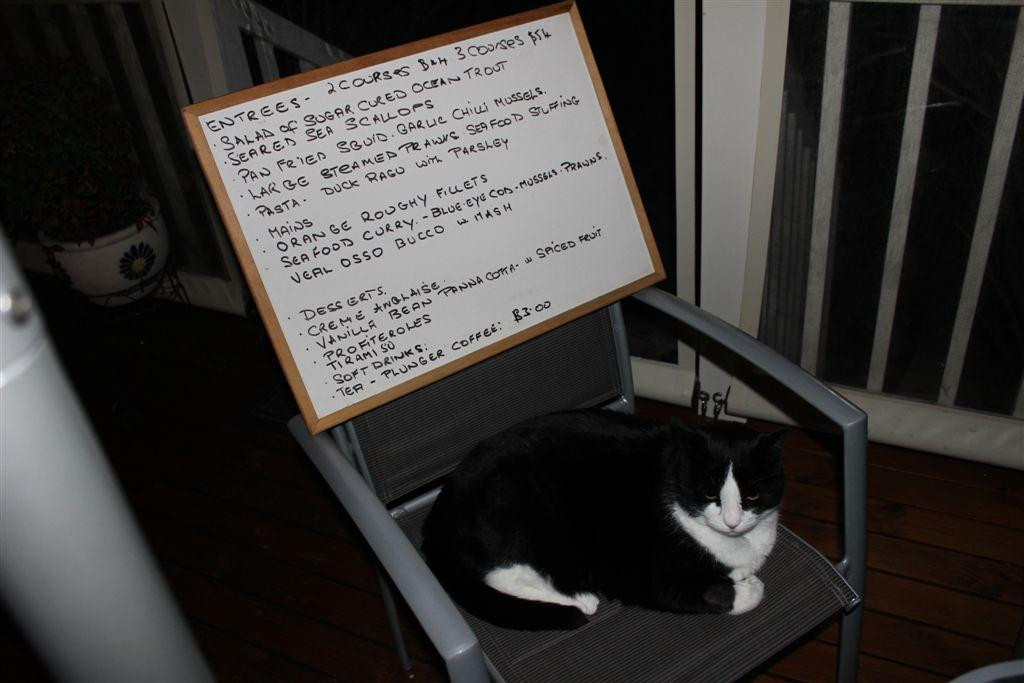 ENTREES - 2 COURSES $44 3 COURSES $54
· SALAD OF SUGAR CURED OCEAN TROUT
· SEARED SEA SCALLOPS
· PAN FRIED SQUID. GARLIC CHILLI MUSSELS.
· LARGE STEAMED PRAWNS. SEAFOOD STUFFING
· PASTA. DUCK RAGU with PARSLEY
· MAINS
· ORANGE ROUGHY FILLETS
· SEAFOOD CURRY. - BLUE-EYE COD. MUSSELS. PRAWNS.
VEAL OSSO BUCCO w MASH
· DESSERTS.
· CREME ANGLAISE.
· VANILLA BEAN PANNA COTTA - w SPICED FRUIT
· PROFITEROLES
· TIRAMISU
· SOFT DRINKS:
· TEA - PLUNGER COFFEE: $3.00